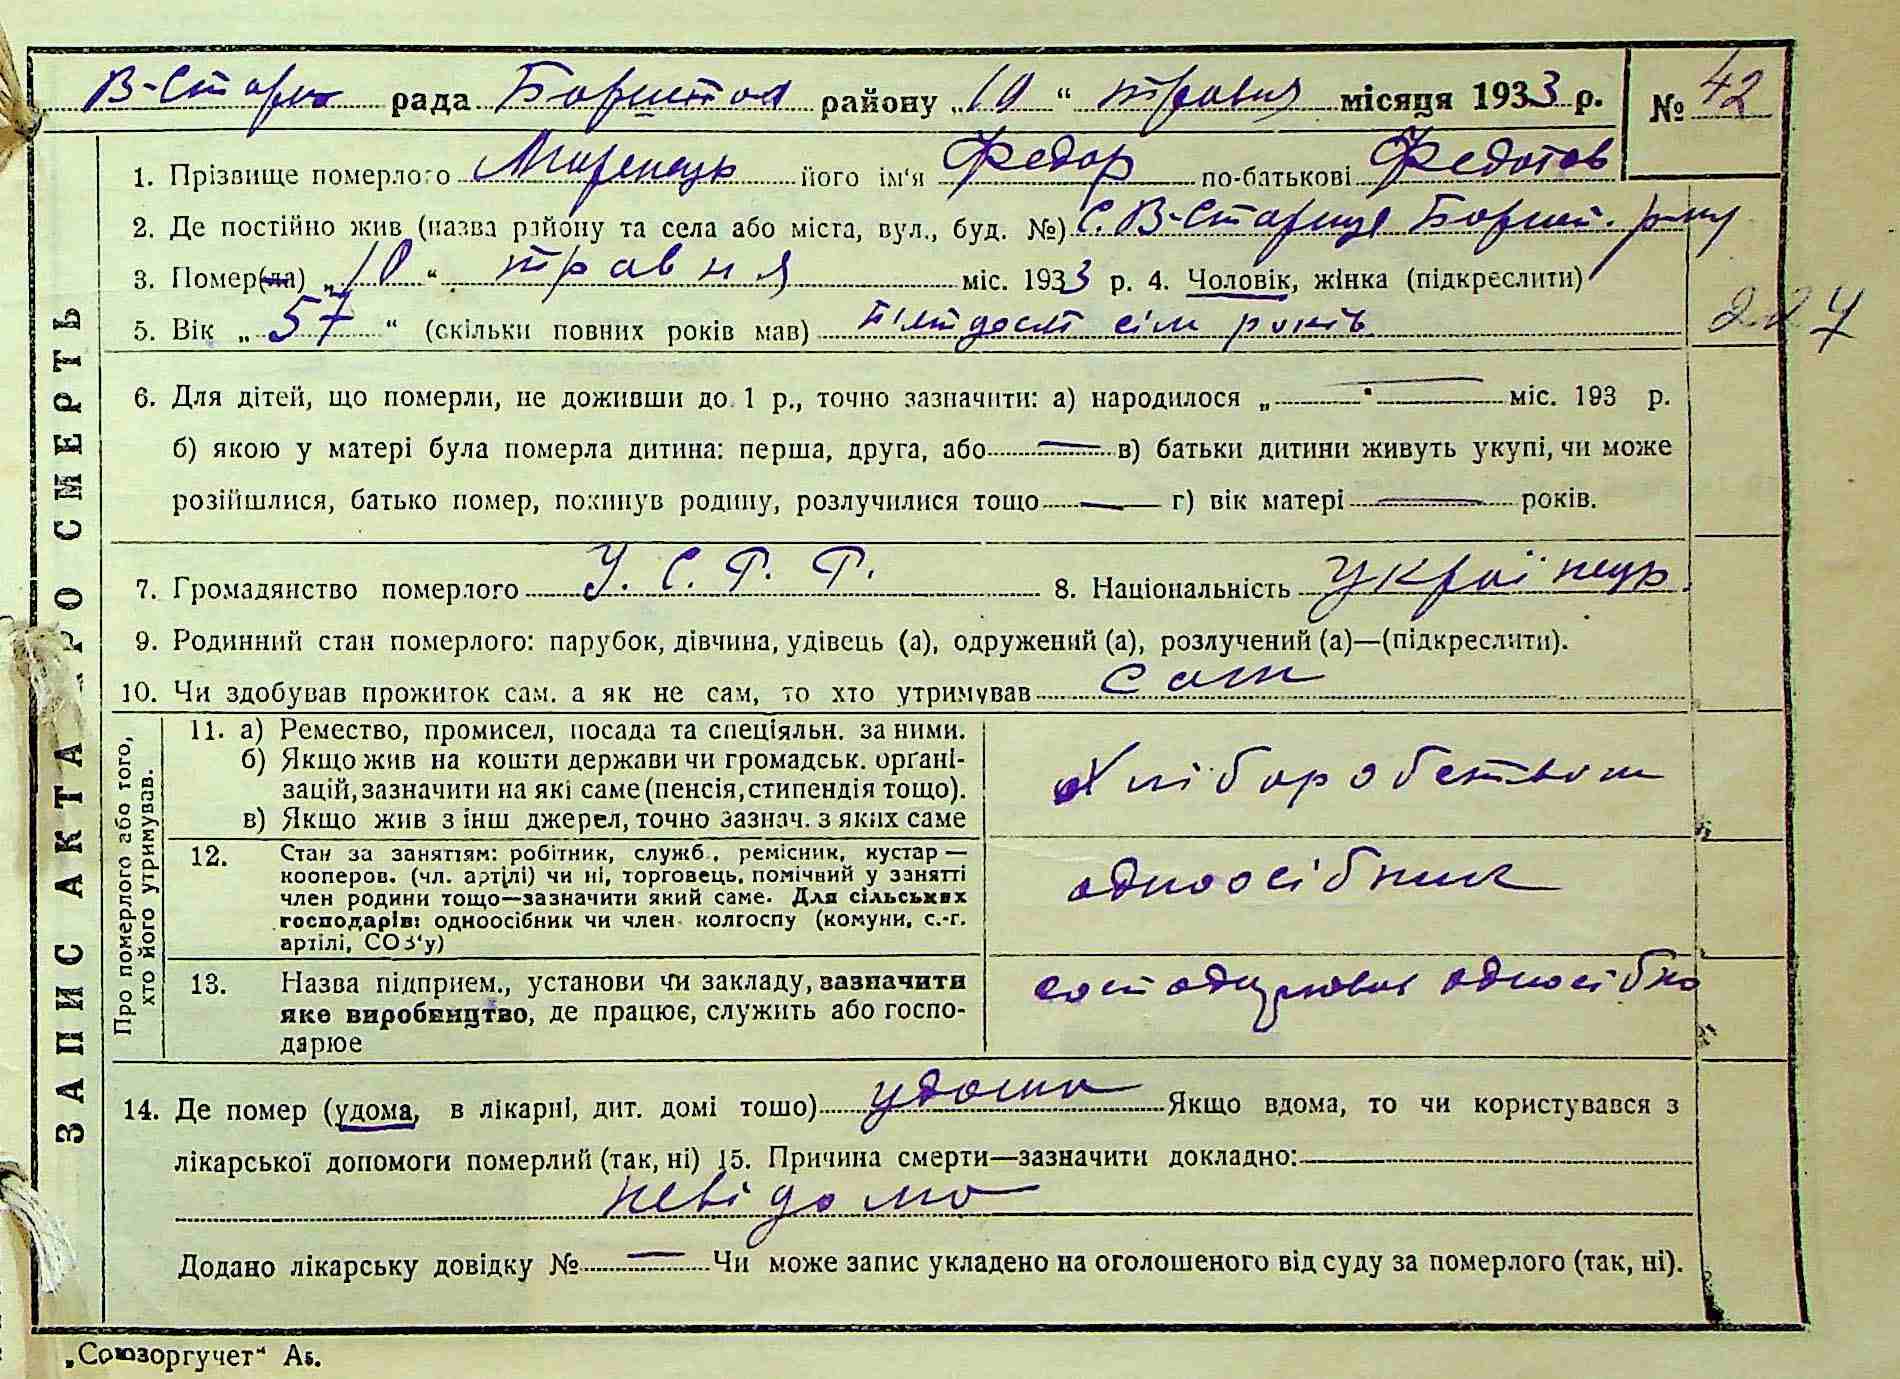 В-Стари рада Боришпол району „10“ травня місяця 1933 р. № 42
1. Прізвище померлого його ім'я Федор по-батькові Федотов
2. Де постійно жив (назва району та села або міста, вул., буд. №) с. В-Стариця Бориш. р-ну
3. Помер(ла) „10“ травня міс. 1933 р. 4. Чоловік, жінка (підкреслити)
5. Вік „57“ (скільки повних років мав) пʼятдесят сім років
227
6. Для дітей, що померли, не доживши до 1 р., точно зазначити: а) народилося „ — міс. 193 р.
б) якою у матері була померла дитина: перша, друга, або — в) батьки дитини живуть укупі, чи може
розійшлися, батько помер, покинув родину, розлучилися тощо — г) вік матері — років.
7. Громадянство померлого У.С.Р.Р. 8. Національність українець
9. Родинний стан померлого: парубок, дівчина, удівець (а), одружений (а), розлучений (а)—(підкреслити).
10. Чи здобував прожиток сам. а як не сам, то хто утримував сам
ЗАПИС АКТА ПРО СМЕРТЬ
Про померлого або того,
хто його утримував.
11. а) Ремество, промисел, посада та спеціяльн. за ними.
б) Якщо жив на кошти держави чи громадськ. органі-
зацій, зазначити на які саме (пенсія, стипендія тощо).
в) Якщо жив з інш джерел, точно зазнач. з яких саме
хліборобством
12. Стан за заняттям: робітник, служб., ремісник, кустар —
кооперов. (чл. артілі) чи ні, торговець, помічний у занятті
член родини тощо—зазначити який саме. Для сільських
господарів: одноосібник чи член колгоспу (комуни, с.-г.
артілі, СОЗ'у)
одноосібник
13. Назва підприєм., установи чи закладу, зазначити
яке виробництво, де працює, служить або госпо-
дарює
одноосібно
14. Де помер (удома, в лікарні, дит. домі тощо) удома Якщо вдома, то чи користувався з
лікарської допомоги померлий (так, ні) 15. Причина смерти—зазначити докладно:
невідомо
Додано лікарську довідку № — Чи може запис укладено на оголошеного від суду за померлого (так, ні).
„Союзоргучет“ А5.